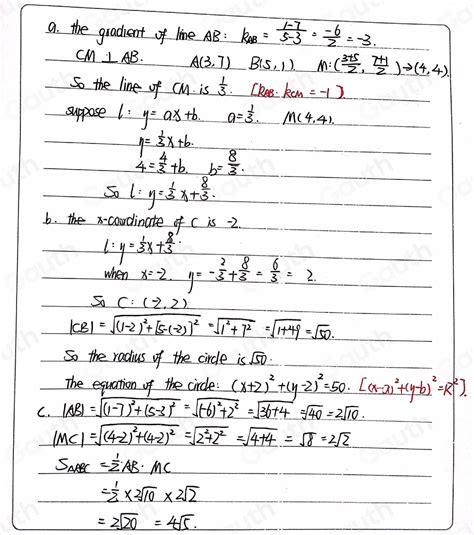 a. the gradient of line AB: k_AB = (1-7)/(5-3) = -6/2 = -3.
CM ⊥ AB. A(3,7) B(5,1). M:((3+5)/2, (7+1)/2) → (4,4).
So the line of CM is 1/3. [k_AB · k_CM = -1].
suppose l: y = ax+b. a = 1/3. M(4,4).
y = 1/3 x + b.
4 = 4/3 + b. b = 8/3.
So l: y = 1/3 x + 8/3.
b. the x-coordinate of C is -2.
l: y = 1/3 x + 8/3.
when x = -2. y = -2/3 + 8/3 = 6/3 = 2.
So C: (-2, 2)
|CB| = √((1-2)²+[5-(-2)]²) = √(1²+7²) = √(1+49) = √50.
So the radius of the circle is √50.
The equation of the circle: (x+2)²+(y-2)²=50. [(x-a)²+(y-b)²=R²].
c. |AB| = √((1-7)²+(5-3)²) = √((-6)²+2²) = √(36+4) = √40 = 2√10.
|MC| = √((4-2)²+(4-2)²) = √(2²+2²) = √(4+4) = √8 = 2√2
S△ABC = 1/2 · AB · MC
= 1/2 × 2√10 × 2√2
= 2√20 = 4√5.